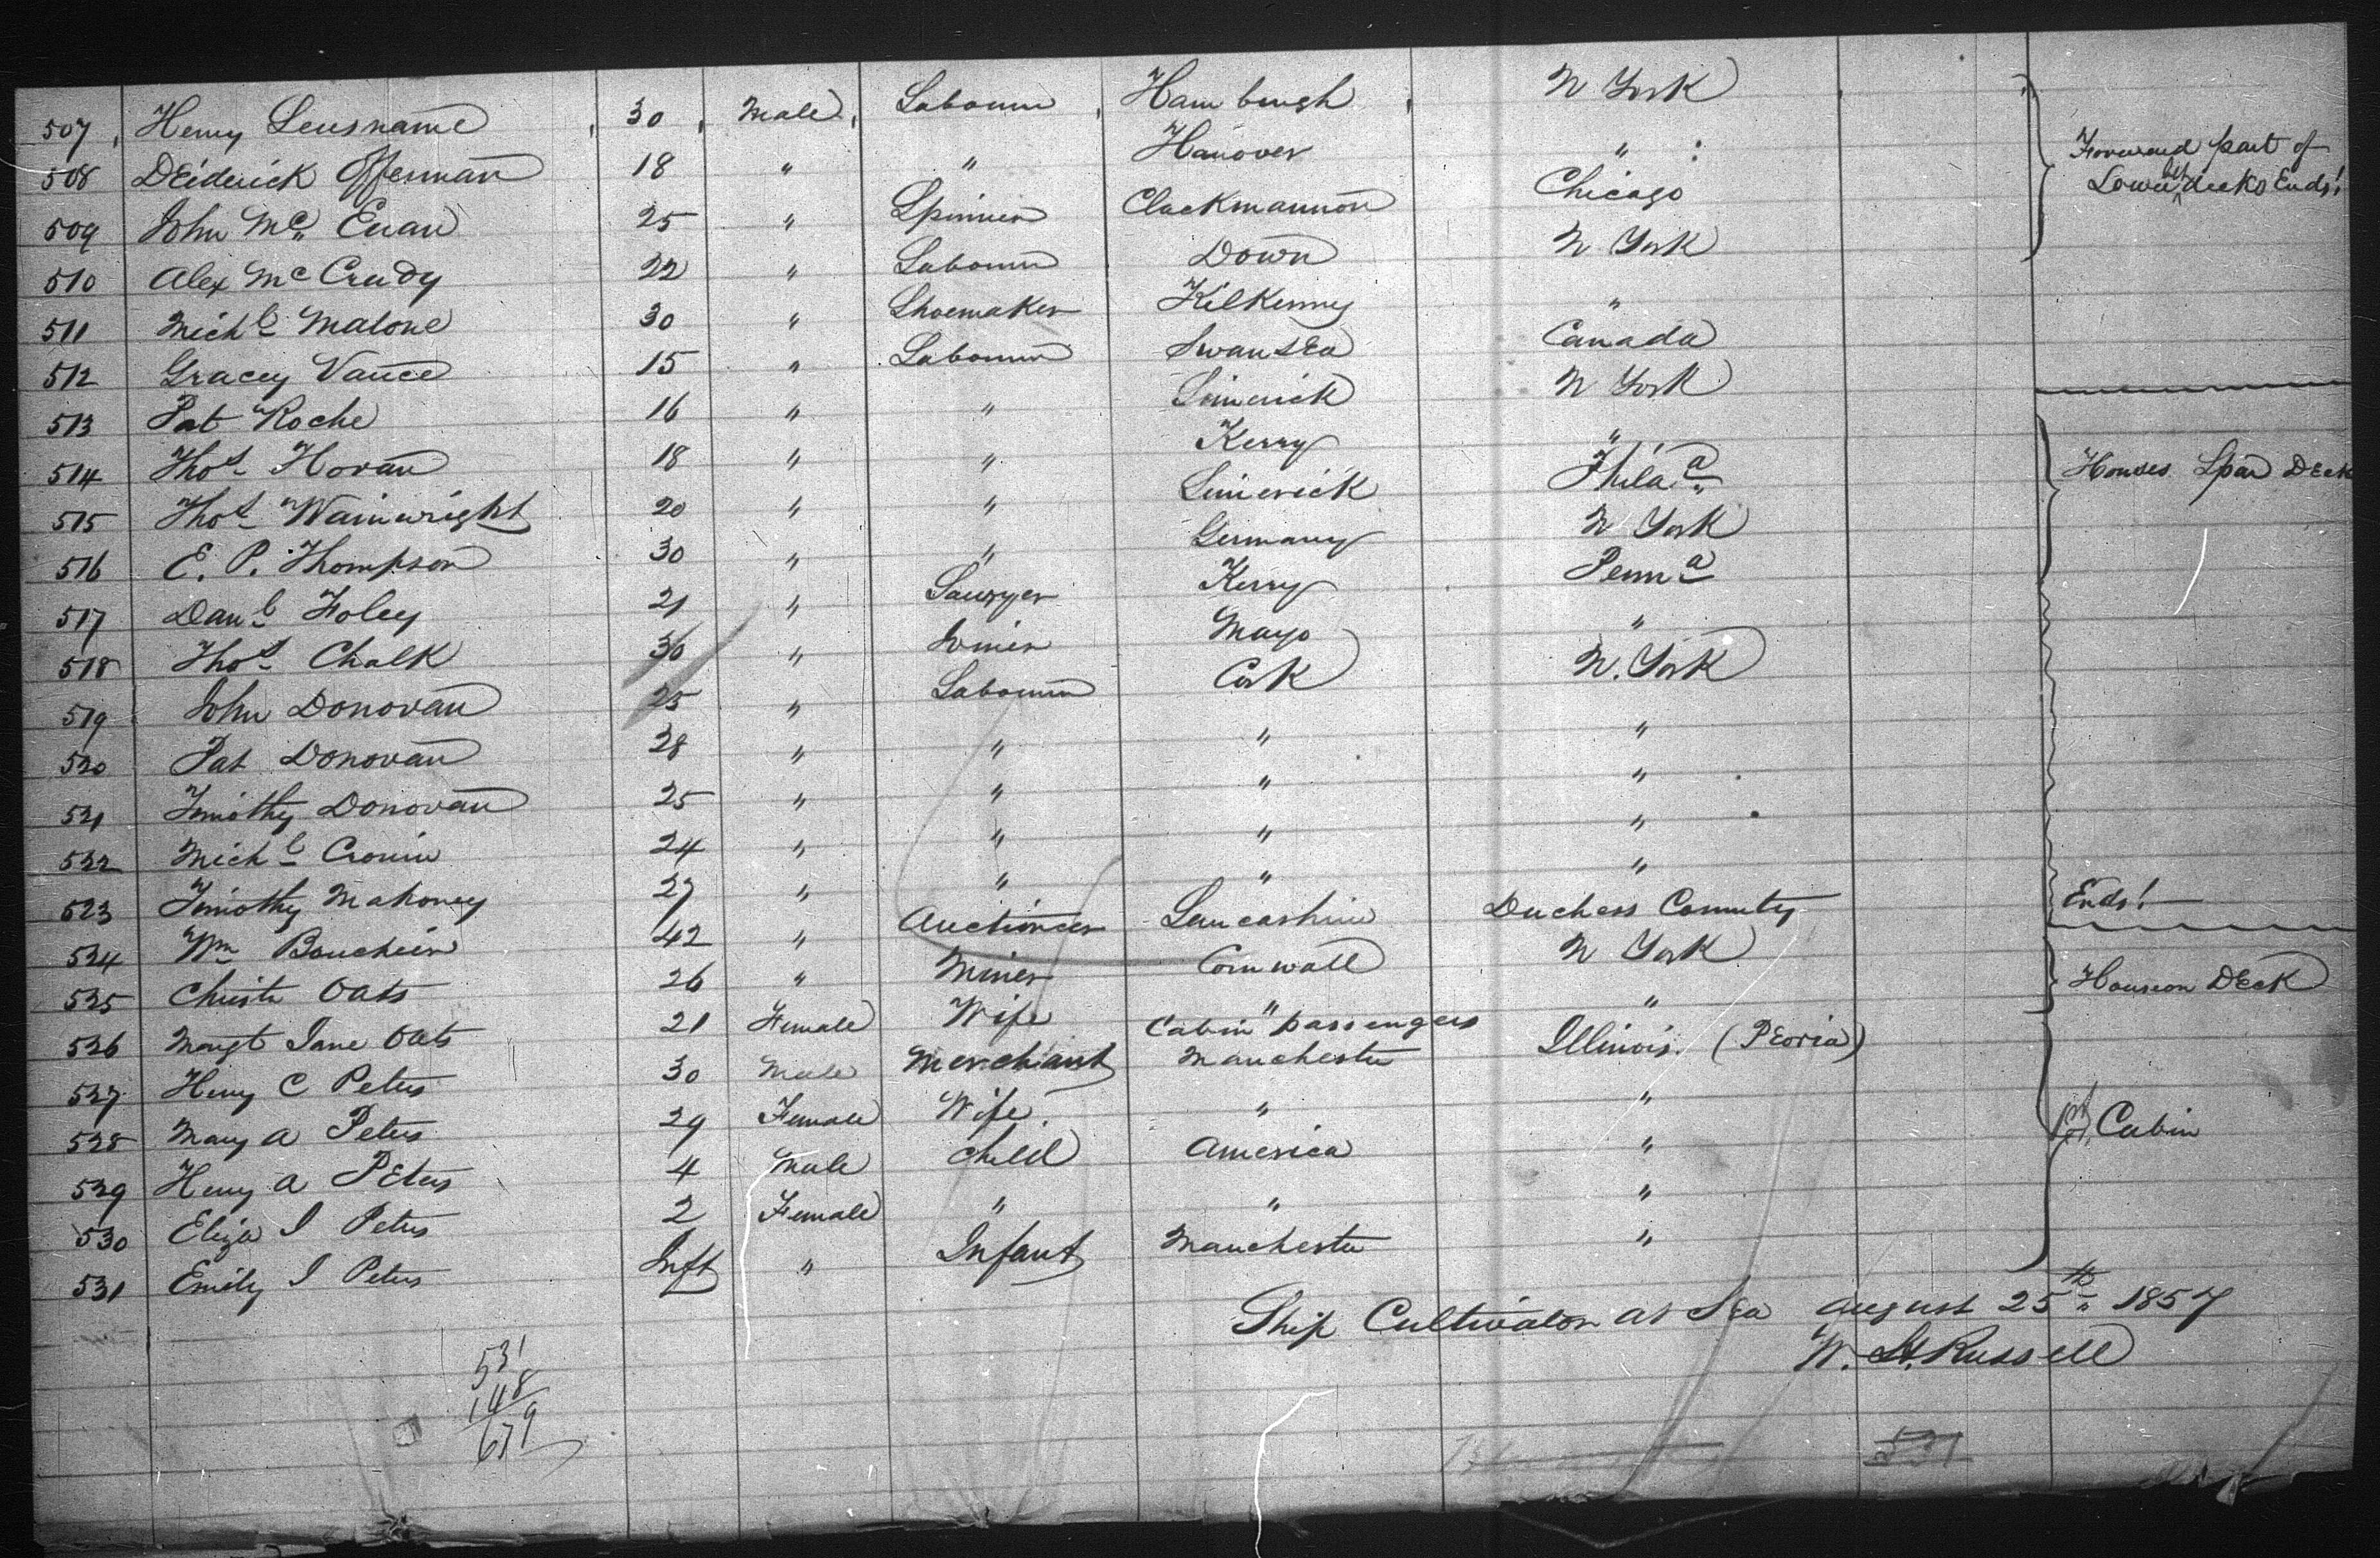 507 Henry Leusname 30 Male Labourer Hamburgh N York
508 DEiderick Offerman 18 " " Hanover "
509 John Mc Euan 25 " Spinner Clackmannon Chicago
510 Alex Mc Crudy 22 " Labourer Down N York
511 Michl Malone 30 " Shoemaker Kilkenny "
512 Gracey Vance 15 " Labourer Swansea Canada
513 Pat Roche 16 " " Limerick N York
514 Thos Horan 18 " " Kerry "
515 Thos Wainwright 20 " " Limerick Phila
516 E. P. Thompson 30 " " Germany N York
517 Danl Foley 21 " Sawyer Kerry Penna
518 Thos Chalk 36 " Joiner Mayo "
519 John Donovan 25 " Labourer Cork N. York
520 Pat Donovan 28 " " " "
521 Timothy Donovan 25 " " " "
522 Michl Cronin 24 " " " "
523 Timothy Mahoney 27 " " " "
524 Wm Boucheir 42 " Auctioneer Lancashire Duchess County
525 Christr Oats 26 " Miner Cornwall N York
526 Margt Jane Oats 21 Female Wife " "
Cabin passengers
527 Henry C Peters 30 Male Merchant Manchester Illinois. (Peoria)
528 Mary A Peters 29 Female Wife " "
529 Henry A Peters 4 Male Child America "
530 Eliza J Peters 2 Female " " "
531 Emily J Peters Inft " Infant Manchester "
Forward part of
Lower bet decks Ends!
Houses Spar Deck
Ends!
House on Deck
1st Cabin
Ship Cultivator at Sea August 25th 1857
W. H. Russell
531
148
679
531